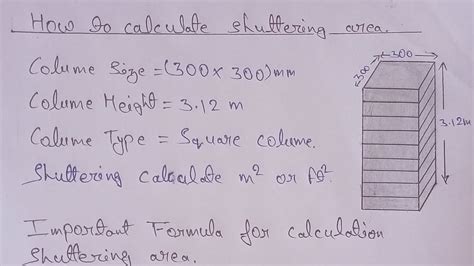 How to calculate shuttering area.
300
300
Colume Size = (300 x 300) mm
Colume Height = 3.12 m
3.12m
Colume Type = Square colume.
Shuttering calculate m² or ft².
Important Formula for calculation
shuttering area.